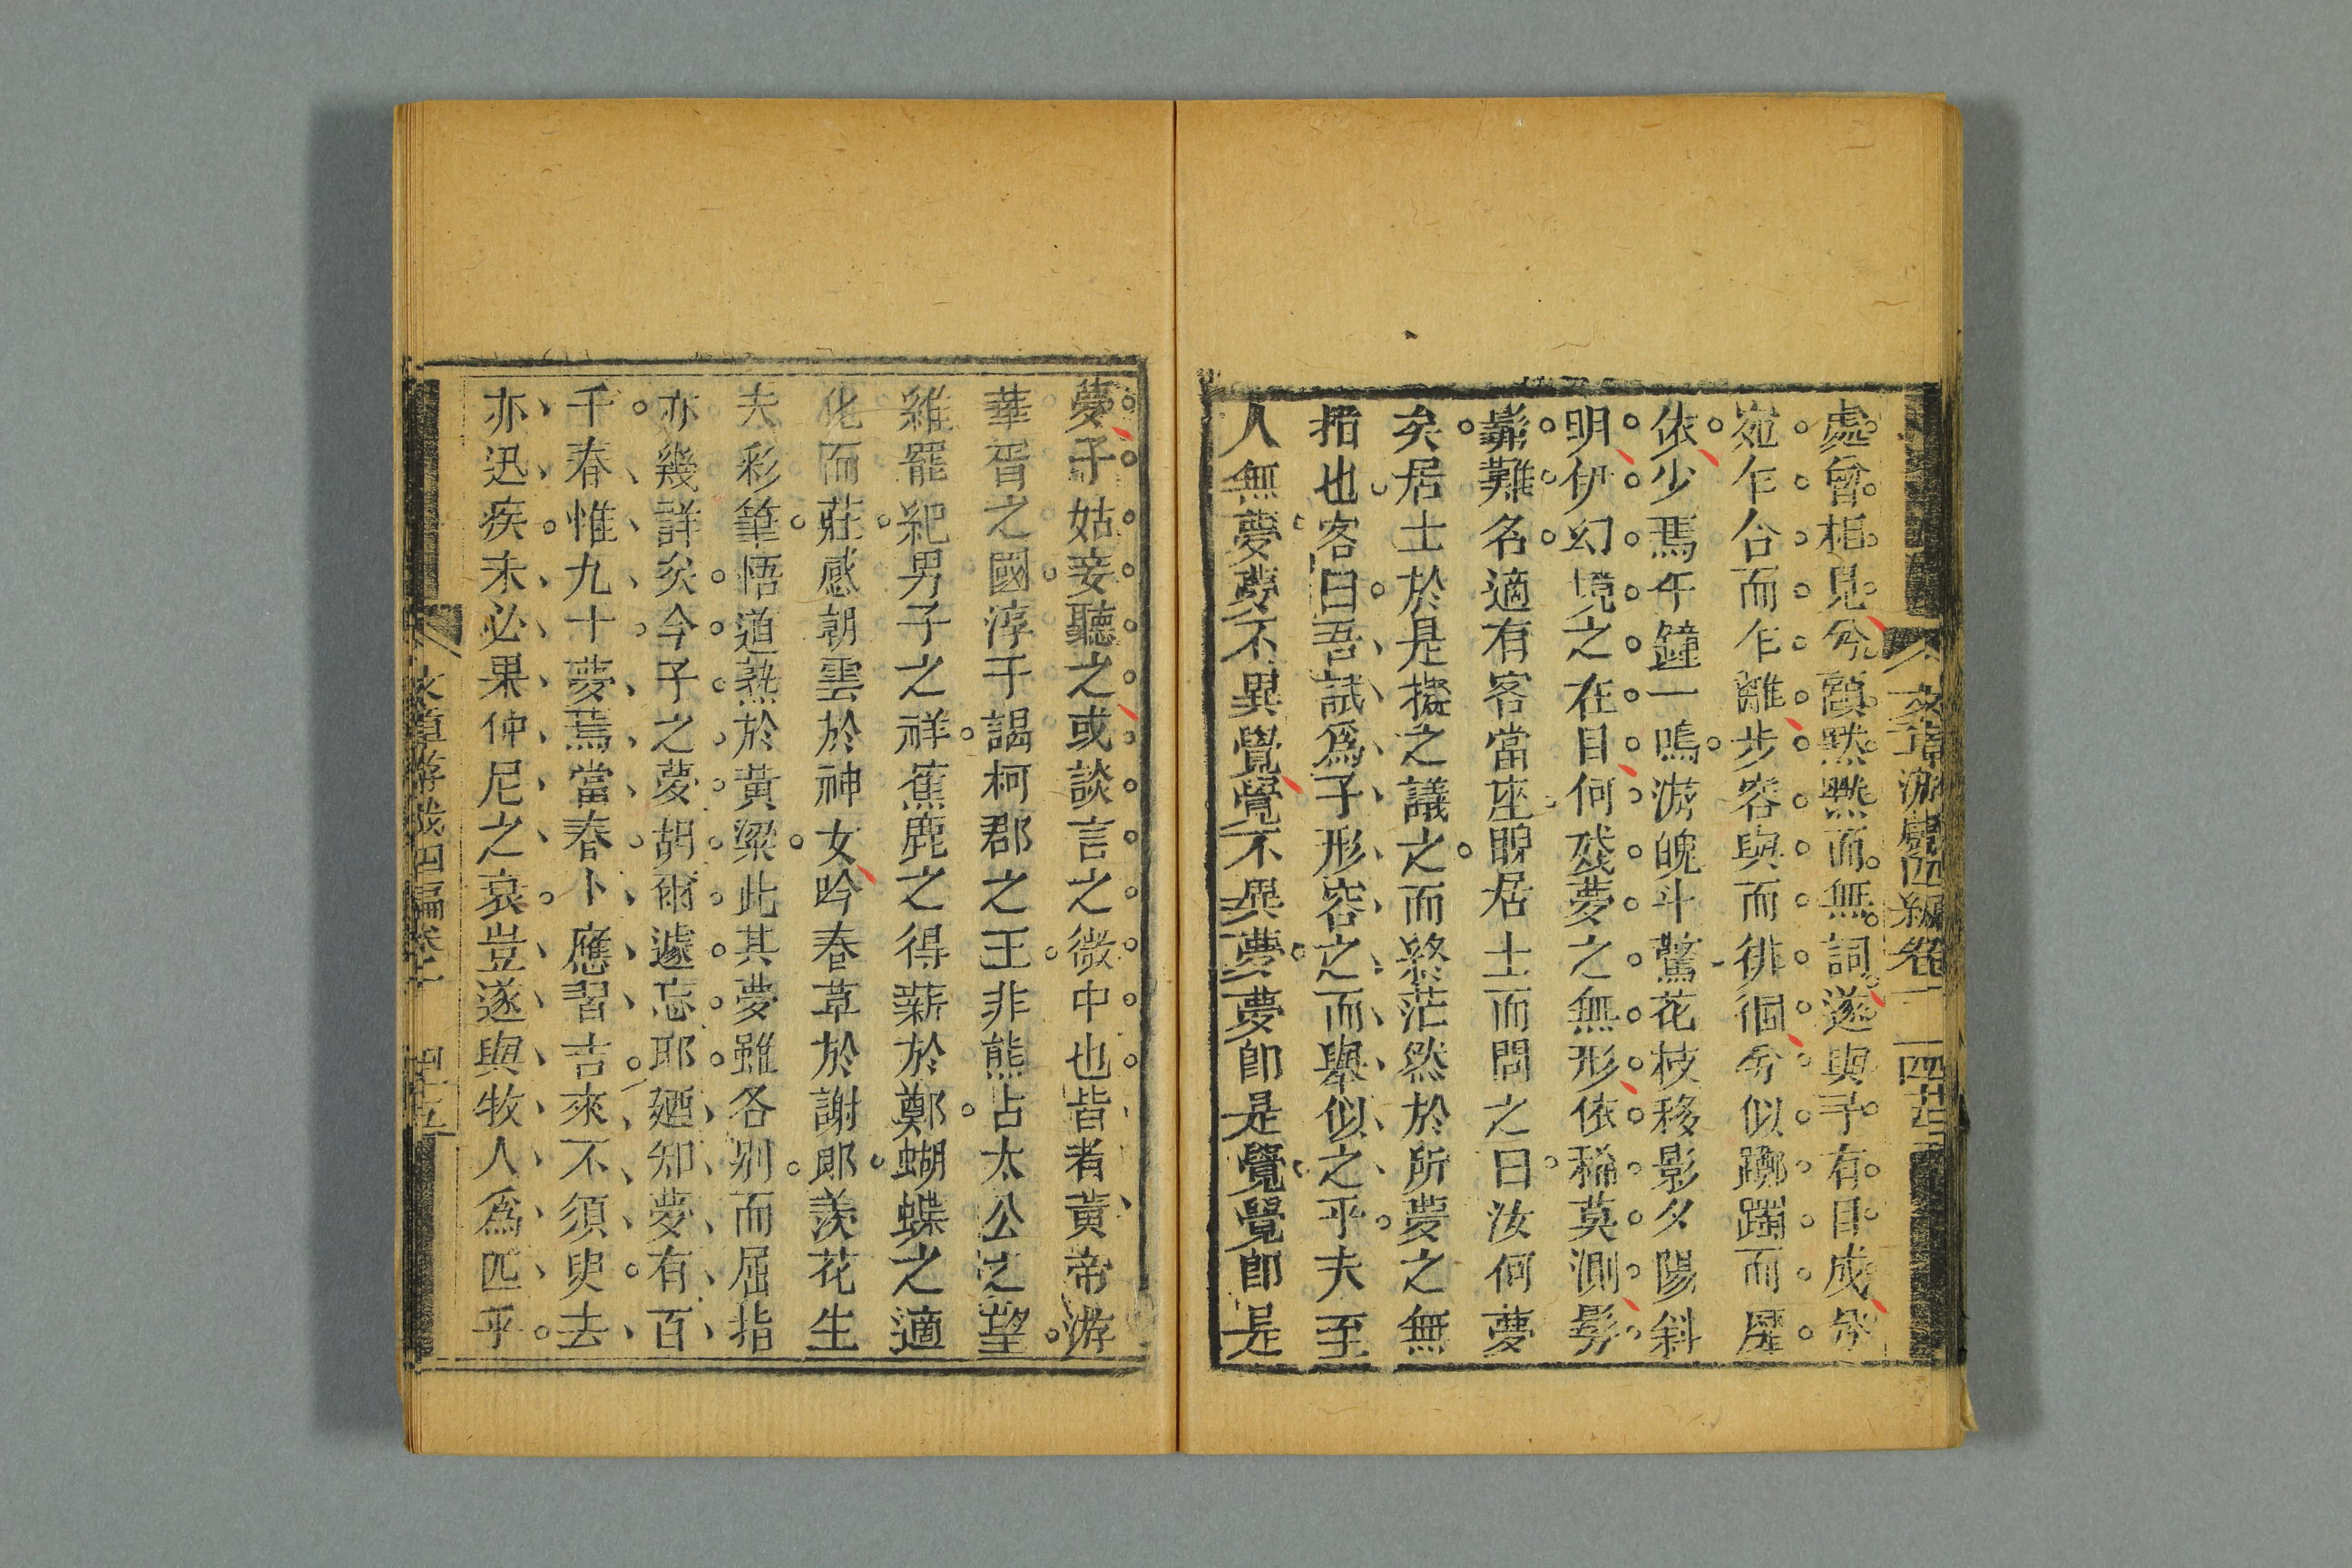 文章游戲四編卷二 四十五
處曾相見兮顏默默而無詞遂與予有目成兮
宛乍合而乍離步容與而徘徊兮似躑躅而遲
依少焉午鐘一鳴游魄斗驚花枝移影夕陽斜
明伊幻境之在目何殘夢之無形依稀莫測髣
髴難名適有客當座睨居士而問之曰汝何夢
矣居士於是掇之議之而終茫然於所夢之無
指也客曰吾試爲子形容之而舉似之乎夫至
人無夢夢不異覺覺不異夢夢卽是覺覺卽是
夢子姑妄聽之或談言之微中也昔者黃帝游
華胥之國淳于謁柯郡之王非熊占太公之望
維羆紀男子之祥蕉鹿之得薪於鄭蝴蝶之適
化而莊感朝雲於神女吟春草於謝郎羨花生
夫彩筆悟道熟於黃粱此其夢雖各别而屈指
亦幾詳矣今子之夢胡爾遽忘耶廼知夢有百
千春惟九十夢焉當春卜應習吉來不須臾去
亦迅疾未必果仲尼之衰豈遂與牧人爲匹乎
文章游戲四編卷二 四十五